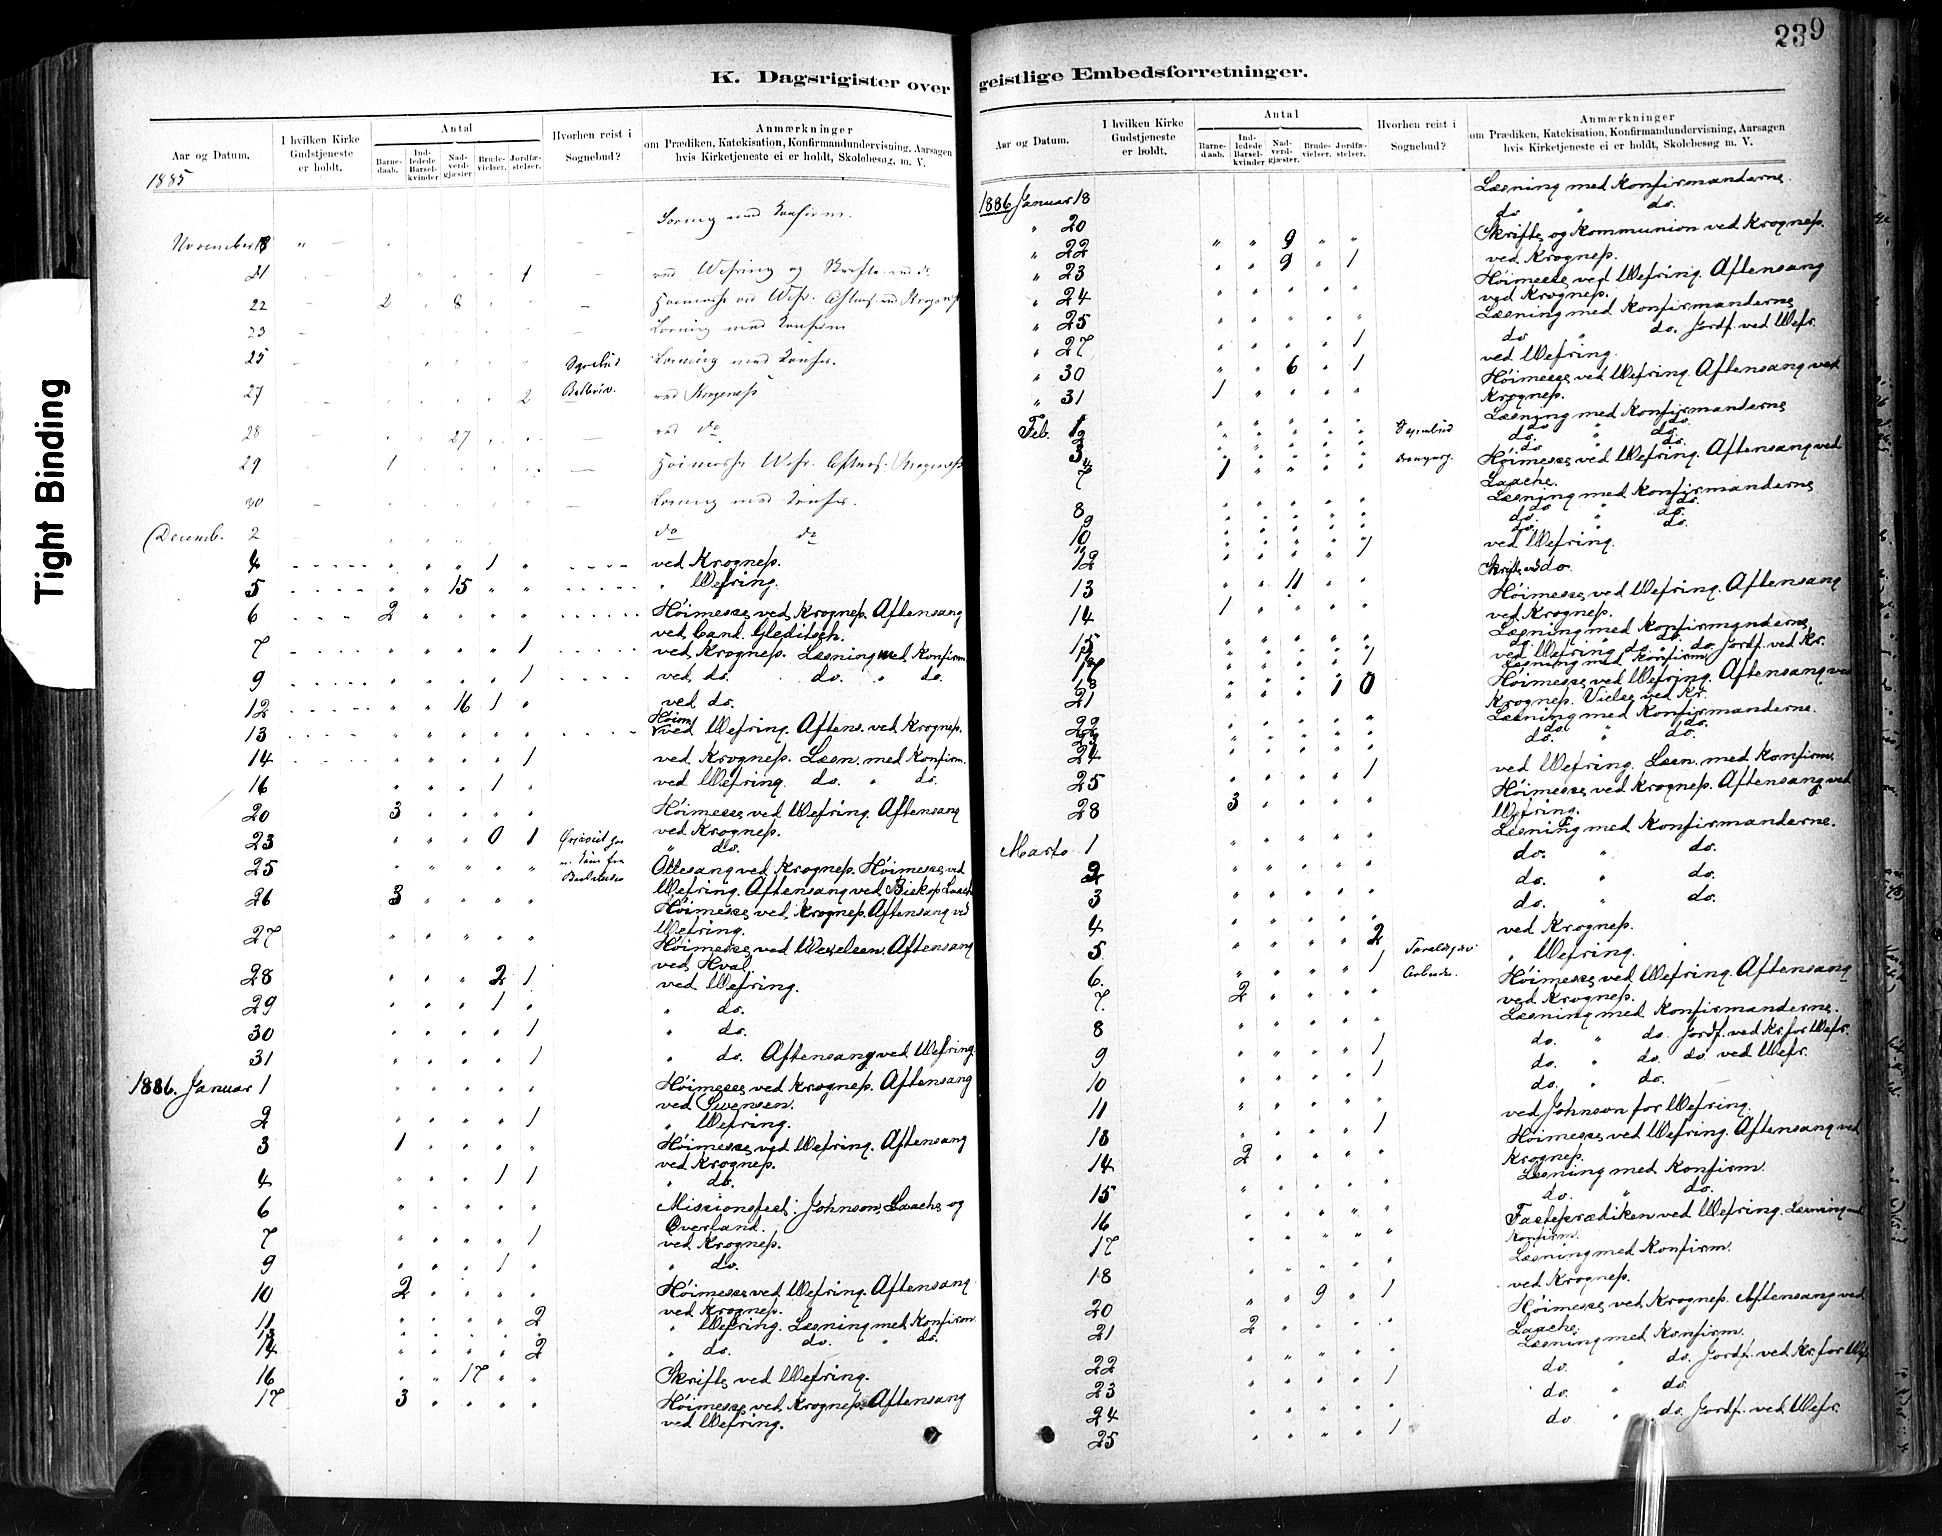 239
Tight Binding
K. Dagsrigister over
Aar og Datum.
I hvilken Kirke Gudstjeneste er holdt.
Antal
Barnedaab.
Indledede Barselkvinder
Nadverdgjæster.
Brudevielser.
Jordfæstelser.
Hvorhen reist i Sognebud?
Anmærkninger
om Prædiken, Katekisation, Konfirmandundervisning, Aarsagen
hvis Kirketjeneste ei er holdt, Skolebesøg m. V.
1885
November 18
21 1
22 2 8
23
25
27 2
28 27 ved do
29 1
30
Decemb. 2 do do
4 1 ved Krogness.
5 15 " Wefring.
6 2 Høimesse ved Krogness. Aftensang
ved Cand. Gleditsch.
7 1 ved Krogness. Læsning med Konfirm.
9 1 ved do. do. " do.
12 16 1 ved do.
13 Høim. ved Wefring. Aftens. ved Krogness.
14 1 ved Krogness. Læsn. med Konfirm.
16 1 ved Wefring do. " do.
20 3 Høimesse ved Wefring. Aftensang
ved Krogness.
23 0 1 " do.
25 Ottesang ved Krogness. Høimesse ved
Wefring. Aftensang ved Biskop Laache
26 3 Høimesse ved Krogness. Aftensang ved
Wefring.
27 Høimesse ved Wexelsen. Aftensang
ved Hval.
28 2 1 ved Wefring.
29 1 " do.
30 1 " do.
31 1 " do. Aftensang ved Wefring.
1886. Januar 1 Høimesse ved Krogness. Aftensang
ved Svensen.
2 1 " Wefring.
3 1 Høimesse ved Wefring. Aftensang
ved Krogness.
4 1 1 " do.
6 Missionsfest: Johnson, Laache og
Øverland.
7 1 ved Krogness.
9 1 " do.
10 2 Høimesse ved Wefring. Aftensang
ved Krogness.
11 2 " Wefring. Læsning med Konfirm.
13
14 2 " do. do. " do.
16 17 Skrifte ved Wefring.
17 3 Høimesse ved Krogness. Aftensang
ved Wefring.
geistlige Embedsforretninger.
Aar og Datum.
I hvilken Kirke Gudstjeneste er holdt.
Antal
Barnedaab.
Indledede Barselkvinder
Nadverdgjæster.
Brudevielser.
Jordfæstelser.
Hvorhen reist i Sognebud?
Anmærkninger
om Prædiken, Katekisation, Konfirmandundervisning, Aarsagen
hvis Kirketjeneste ei er holdt, Skolebesøg m. V.
1886 Januar 18 Læsning med Konfirmanderne.
" 20 do " do.
" 22 9 Skrifte og Kommunion ved Krogness.
" 23 9 1 ved Krogness.
" 24 Høimesse ved Wefring. Aftensang
ved Krogness.
" 25 Læsning med Konfirmanderne
" 27 1 do " do. Jordf. ved Wefr.
" 30 6 1 ved Wefring.
" 31 1 Høimesse ved Wefring. Aftensang ved
Krogness.
Feb. 1 Læsning med Konfirmanderne
2 do " do.
3 do. " do.
4 do " do.
7 1 Høimesse ved Wefring. Aftensang ved
Laache.
8 Læsning med Konfirmanderne
9 do " do.
10 do. " do.
11 do. " do.
12 1 ved Wefring.
13 11 Skrifte ved do.
14 1 Høimesse ved Wefring. Aftensang
ved Krogness.
15 Læsning med Konfirmanderne
17 1 ved Wefring do. " do. Jordf. ved Kr.
18 Læsning med Konfirm.
21 1 0 Høimesse ved Wefring. Aftensang ved
Krogness. Vielse ved Kr.
22 Læsning med Konfirmanderne.
23 do " do.
24 do. " do.
25 1 ved Wefring. Læsn. med Konfirm.
28 3 Høimesse ved Krogness. Aftensang ved
Wefring.
Marts 1 Læsning med Konfirmanderne.
2 do. " do.
3 do. " do.
4 do. " do.
5 2 ved Krogness.
6. 1 " Wefring.
7. 2 Høimesse ved Wefring. Aftensang
ved Krogness.
8 Læsning med Konfirmanderne.
9 1 do. " do Jordf. ved Kr. for Wefr.
10 1 do. " do. do ved Wefr.
11 do. " do.
13 1 ved Johnson for Wefring.
14 2 Høimesse ved Wefring. Aftensang ved
Krogness.
15 Læsning med Konfirm.
16 do. " do.
17 Fasteprædiken ved Wefring. Læsning med
Konfirm.
18 Læsning med Konfirm.
20 9 1 ved Krogness.
21 2 Høimesse ved Krogness. Aftensang ved
Laache.
22 Læsning med Konfirm.
23 1 do. " do. Jordf. ved Kr. for Wefr.
24 do. " do.
25 1 do " do. Jordf. ved Wefr.